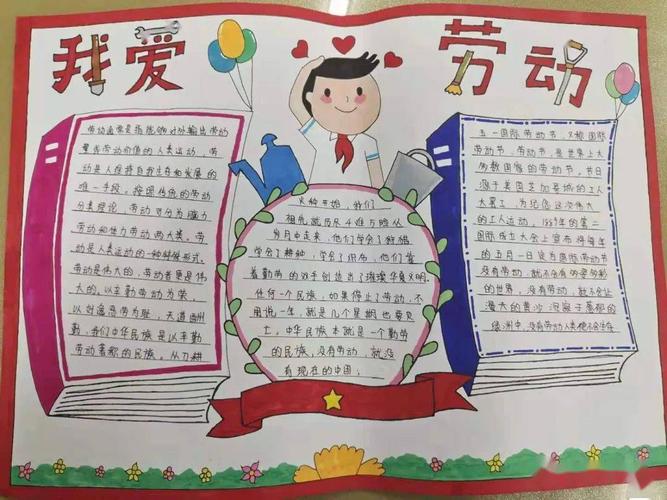 我爱劳动
劳动通常是指能够对外输出劳动
量或劳动价值的人类运动，劳
动是人维持自我生存和发展的
唯一手段。按照传统的劳动
分类理论，劳动可分为脑力
劳动和体力劳动两大类。劳
动是人类运动的一种特殊形式。
劳动是伟大的，劳动者更是伟
大的。以辛勤劳动为荣，
以好逸恶劳为耻，天道酬
勤，我们中华民族是以辛勤
劳动著称的民族。从刀耕
火种开始，我们
祖先就历尽难与险从
岁月中走来，他们学会了狩猎
学会了耕种，学会了织布，他们靠
着勤劳的双手创造出了璀璨华夏文明。
任何一个民族，如果停止了劳动，不
用说一年，就是几个星期也要灭
亡。中华民族本就是一个勤劳
的民族，没有劳动，就没
有现在的中国；
五一国际劳动节，又称国际
劳动节、劳动节，是世界上大
多数国家的劳动节。节日
源于美国芝加哥城的工人
大罢工，为纪念这次伟大
的工人运动，1889年的第二
国际成立大会上宣布将每年
的五月一日设为国际劳动节
没有劳动，就不会有多彩
的世界，没有劳动，就不会让
漫天的黄沙沉寂于葱郁的
绿洲中，没有劳动人类便不会生存